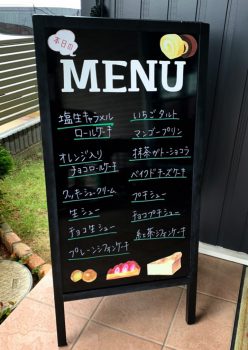 本日の
MENU
塩生キャラメル
ロールケーキ
オレンジ入り
チョコロールケーキ
クッキーシュークリーム
生シュー
チョコ生シュー
プレーンシフォンケーキ
いちごタルト
マンゴープリン
抹茶ガトーショコラ
ベイクドチーズケーキ
プチシュー
チョコプチシュー
紅茶シフォンケーキ